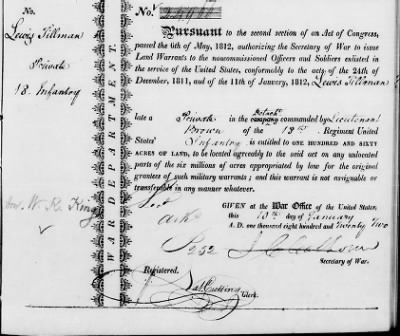 No.
No.
Lewis Tillman
Private
18 Infantry
Hon. W. R. King
WAR DEPARTMENT
Pursuant to the second section of an Act of Congress,
passed the 6th of May, 1812, authorizing the Secretary of War to issue
Land Warrants to the noncommissioned Officers and Soldiers enlisted in
the service of the United States, conformably to the acts of the 24th of
December, 1811, and of the 11th of January, 1812, Lewis Tillman
late a Private in the company Detacht. commanded by Lieutenant
Brown of the 18th Regiment United
States' Infantry is ENTITLED to ONE HUNDRED AND SIXTY
ACRES OF LAND, to be located agreeably to the said act on any unlocated
parts of the six millions of acres appropriated by law for the original
grantees of such military warrants; and this warrant is not assignable or
transferable in any manner whatever.
GIVEN at the War Office of the United States,
this 15th day of January
A. D. one thousand eight hundred and twenty Two
252
J. C. Calhoun
Secretary of War.
Registered.
Cutting
Clerk.